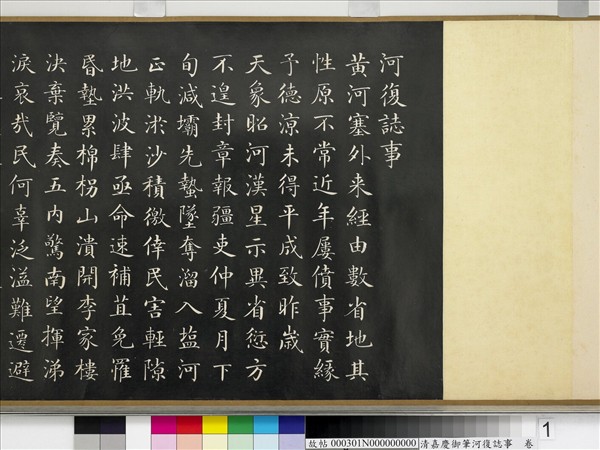 河復誌事
黃河塞外来經由數省地其
性原不常近年屢僨事實緣
予德涼未得平成致昨歳
天象昭河漢星示異省愆方
不遑封章報疆吏仲夏月下
旬減壩先蟄墜奪溜入鹽河
正軌淤沙積徼倖民害輕隙
地洪波肆亟命速補苴免罹
昬墊累棉柺山潰開李家樓
決棄覽奏五内驚南望揮涕
淚哀哉民何辜泛溢難遷避
故帖 000301N000000000 清嘉慶御筆河復誌事 卷
1